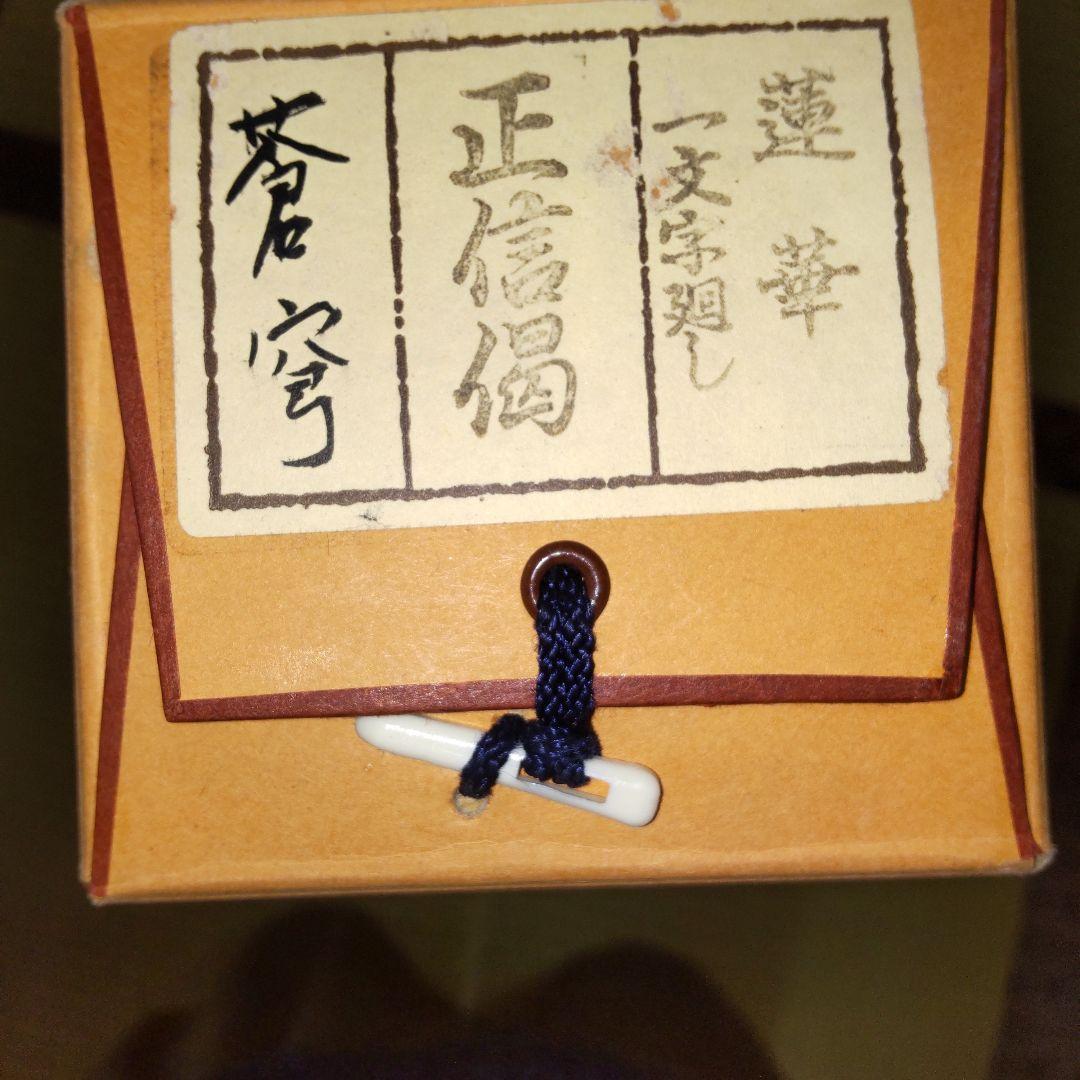 蓮華
一文字廻し
正信偈
蒼穹